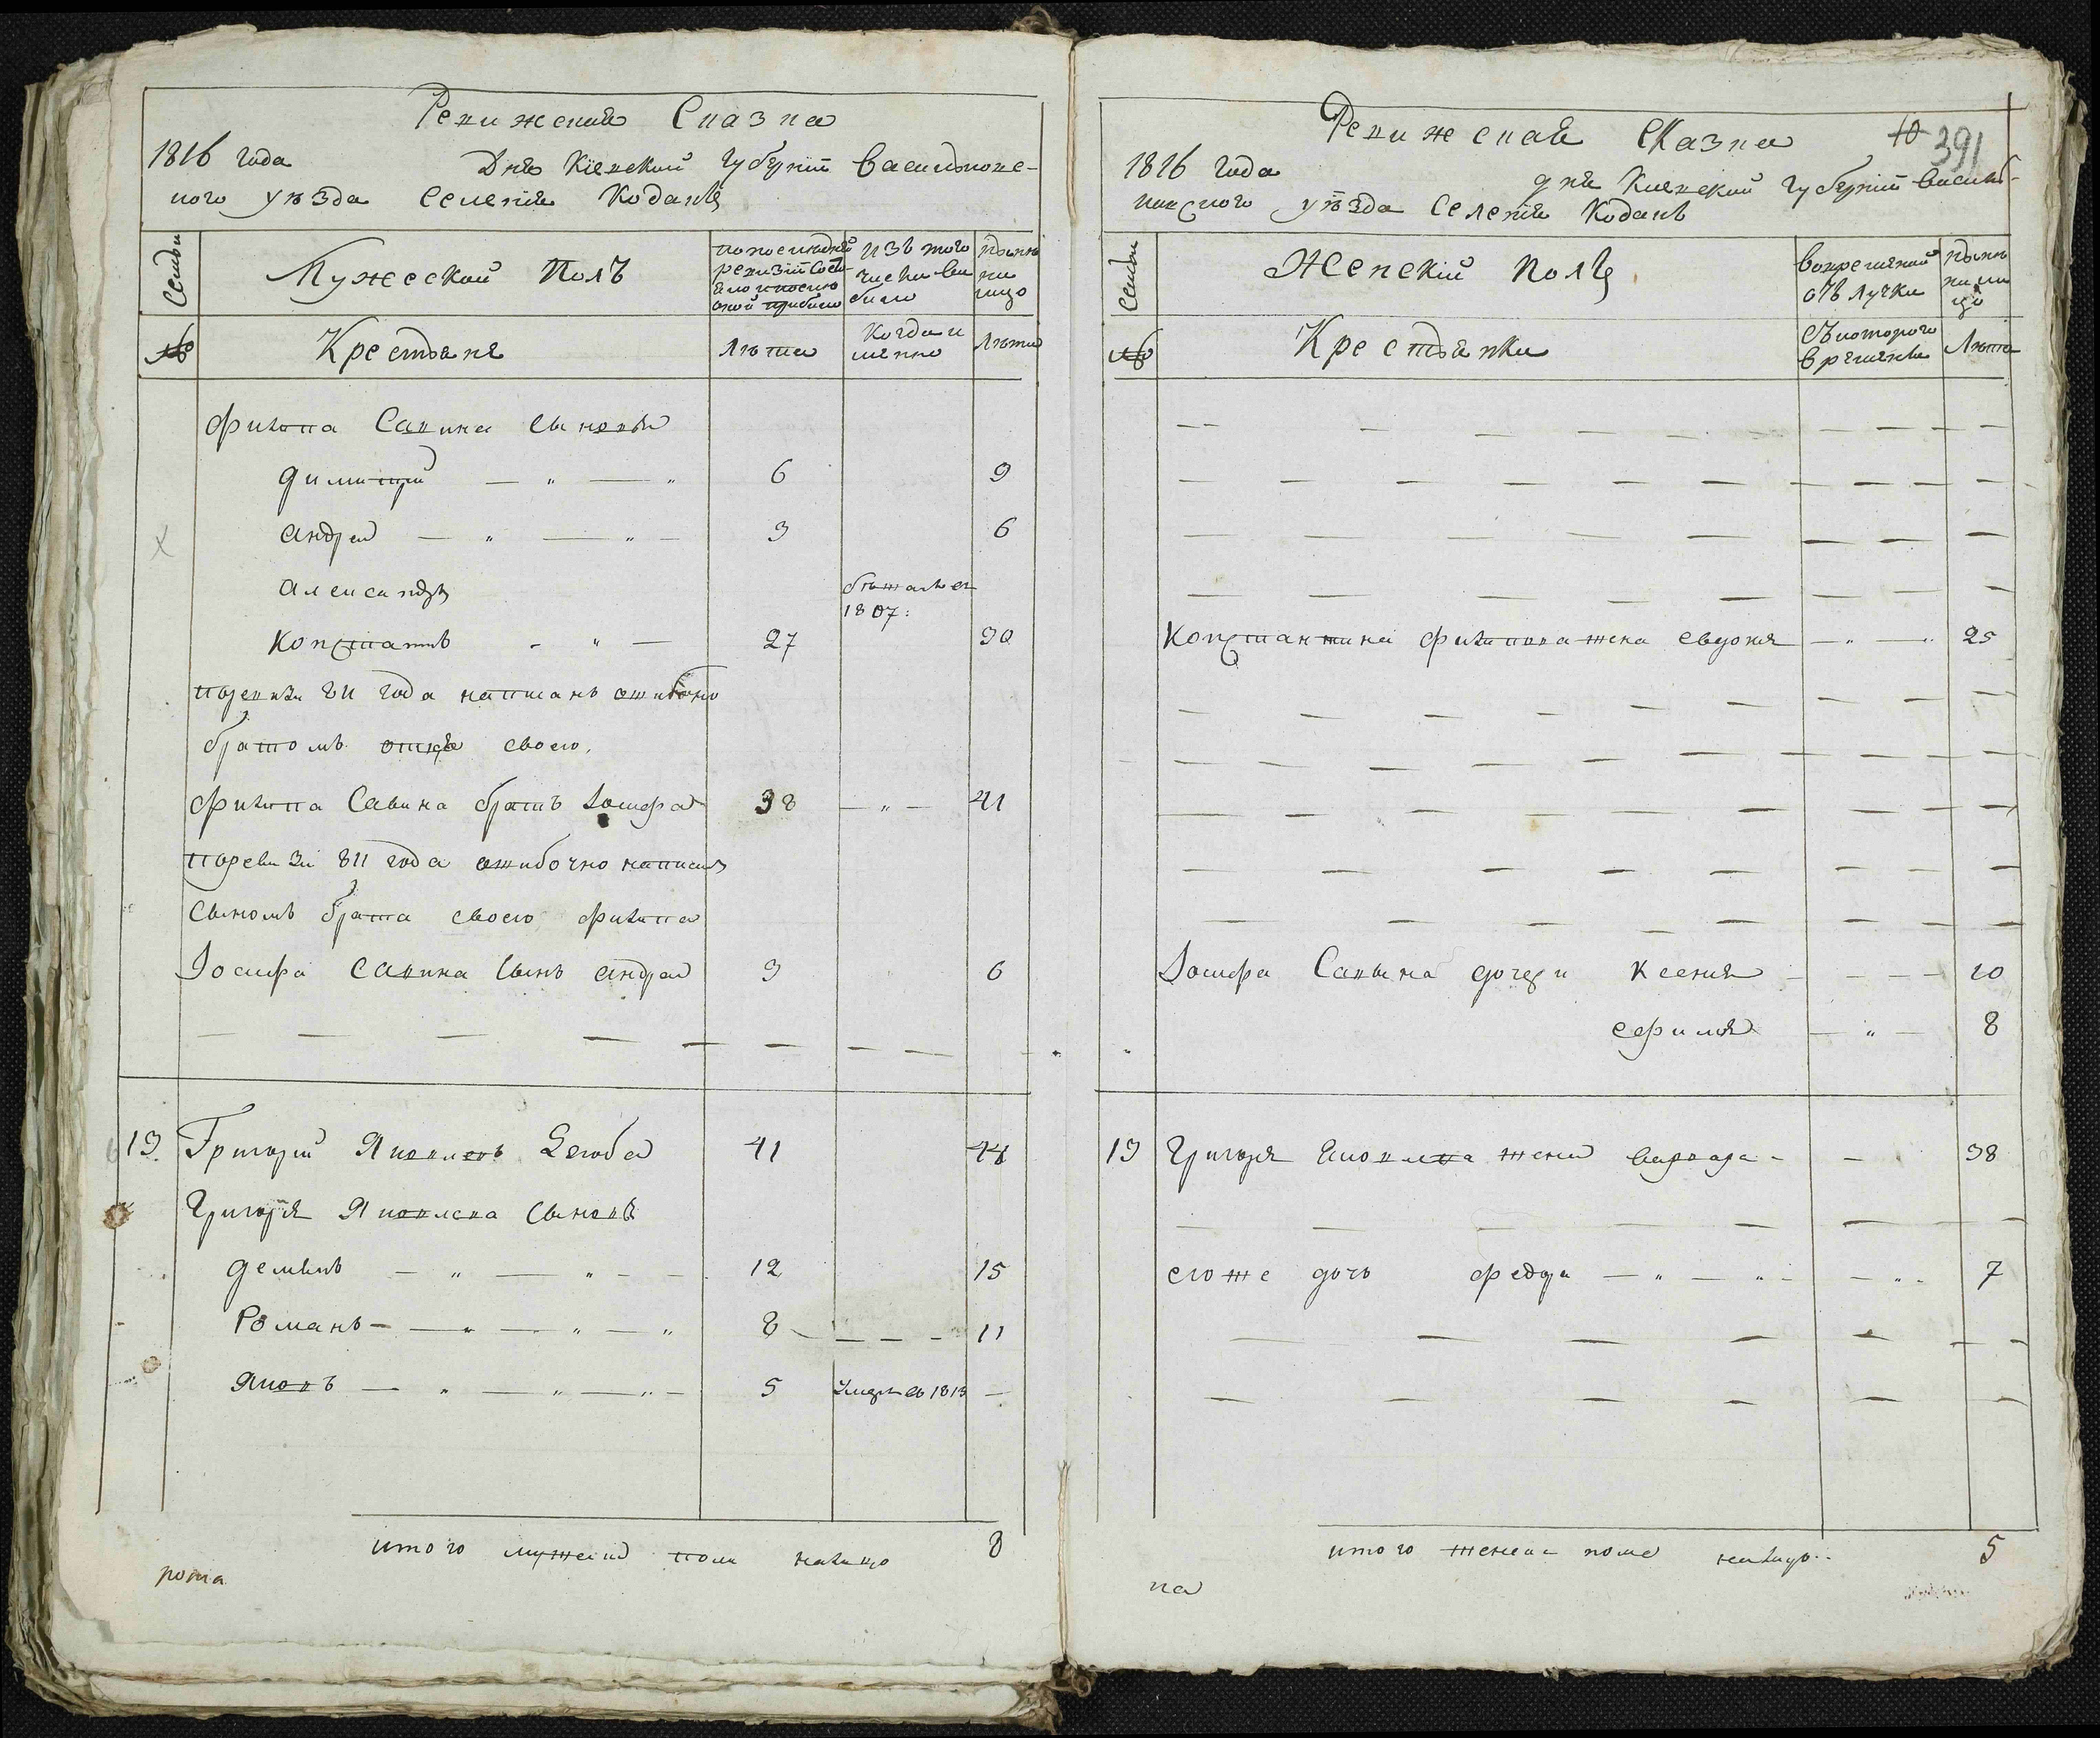 Ревижская Сказка
1816 года Дня Кіевской губерніи Васильковс-
кого уѣзда Селенія Коданъ
Семьи
Мужеской Полъ
по последней ревизіи состояло и после оной прибыло
изъ того числа выбыло
ныне на лицо
№
Крестьяне
Лѣта
Когда именно
Лѣта
Филипа Савина сыновья
Димитрій — " — " 6 9
Андрей — " — " — 3 6
Александръ бежалъ въ 1807:
Константинъ - " — 27 30
По ревизіи 811 года написанъ ошибочно
братомъ отца своего,
Филипа Савина братъ Іосифъ 38 — " — 41
По ревизіи 811 года ошибочно написанъ
сыномъ брата своего Филипа
Іосифа Савина сынъ Андрей 3 6
13 Григорій Яковлевъ 41 44
Григорія Яковлева сыновя
Демьянъ — " — " - - 12 15
Романъ - — " — " — " 8 - — — - 11
Яковъ — " — " — " - 5 умеръ въ 1813 —
итого мужеска пола налицо 8
рота
Ревижская Сказка
10 391
1816 года дня Кіевской губерніи Василь-
ковского уѣзда Селенія Коданъ
Семьи
Женскій Полъ
во временной отлучки
ныне на лицо
№
Крестьянки
съ которого времени
Лѣта
Константина Филипова жена Евдокія — " — " 25
Іосифа Савина дочери Ксенія - - - - 10
Ефимія — " — 8
13 Григорія Яковлева жена Варвара - - 38
его же дочь Федора — " — " - — " - 7
итого женска пола налицо 5
на